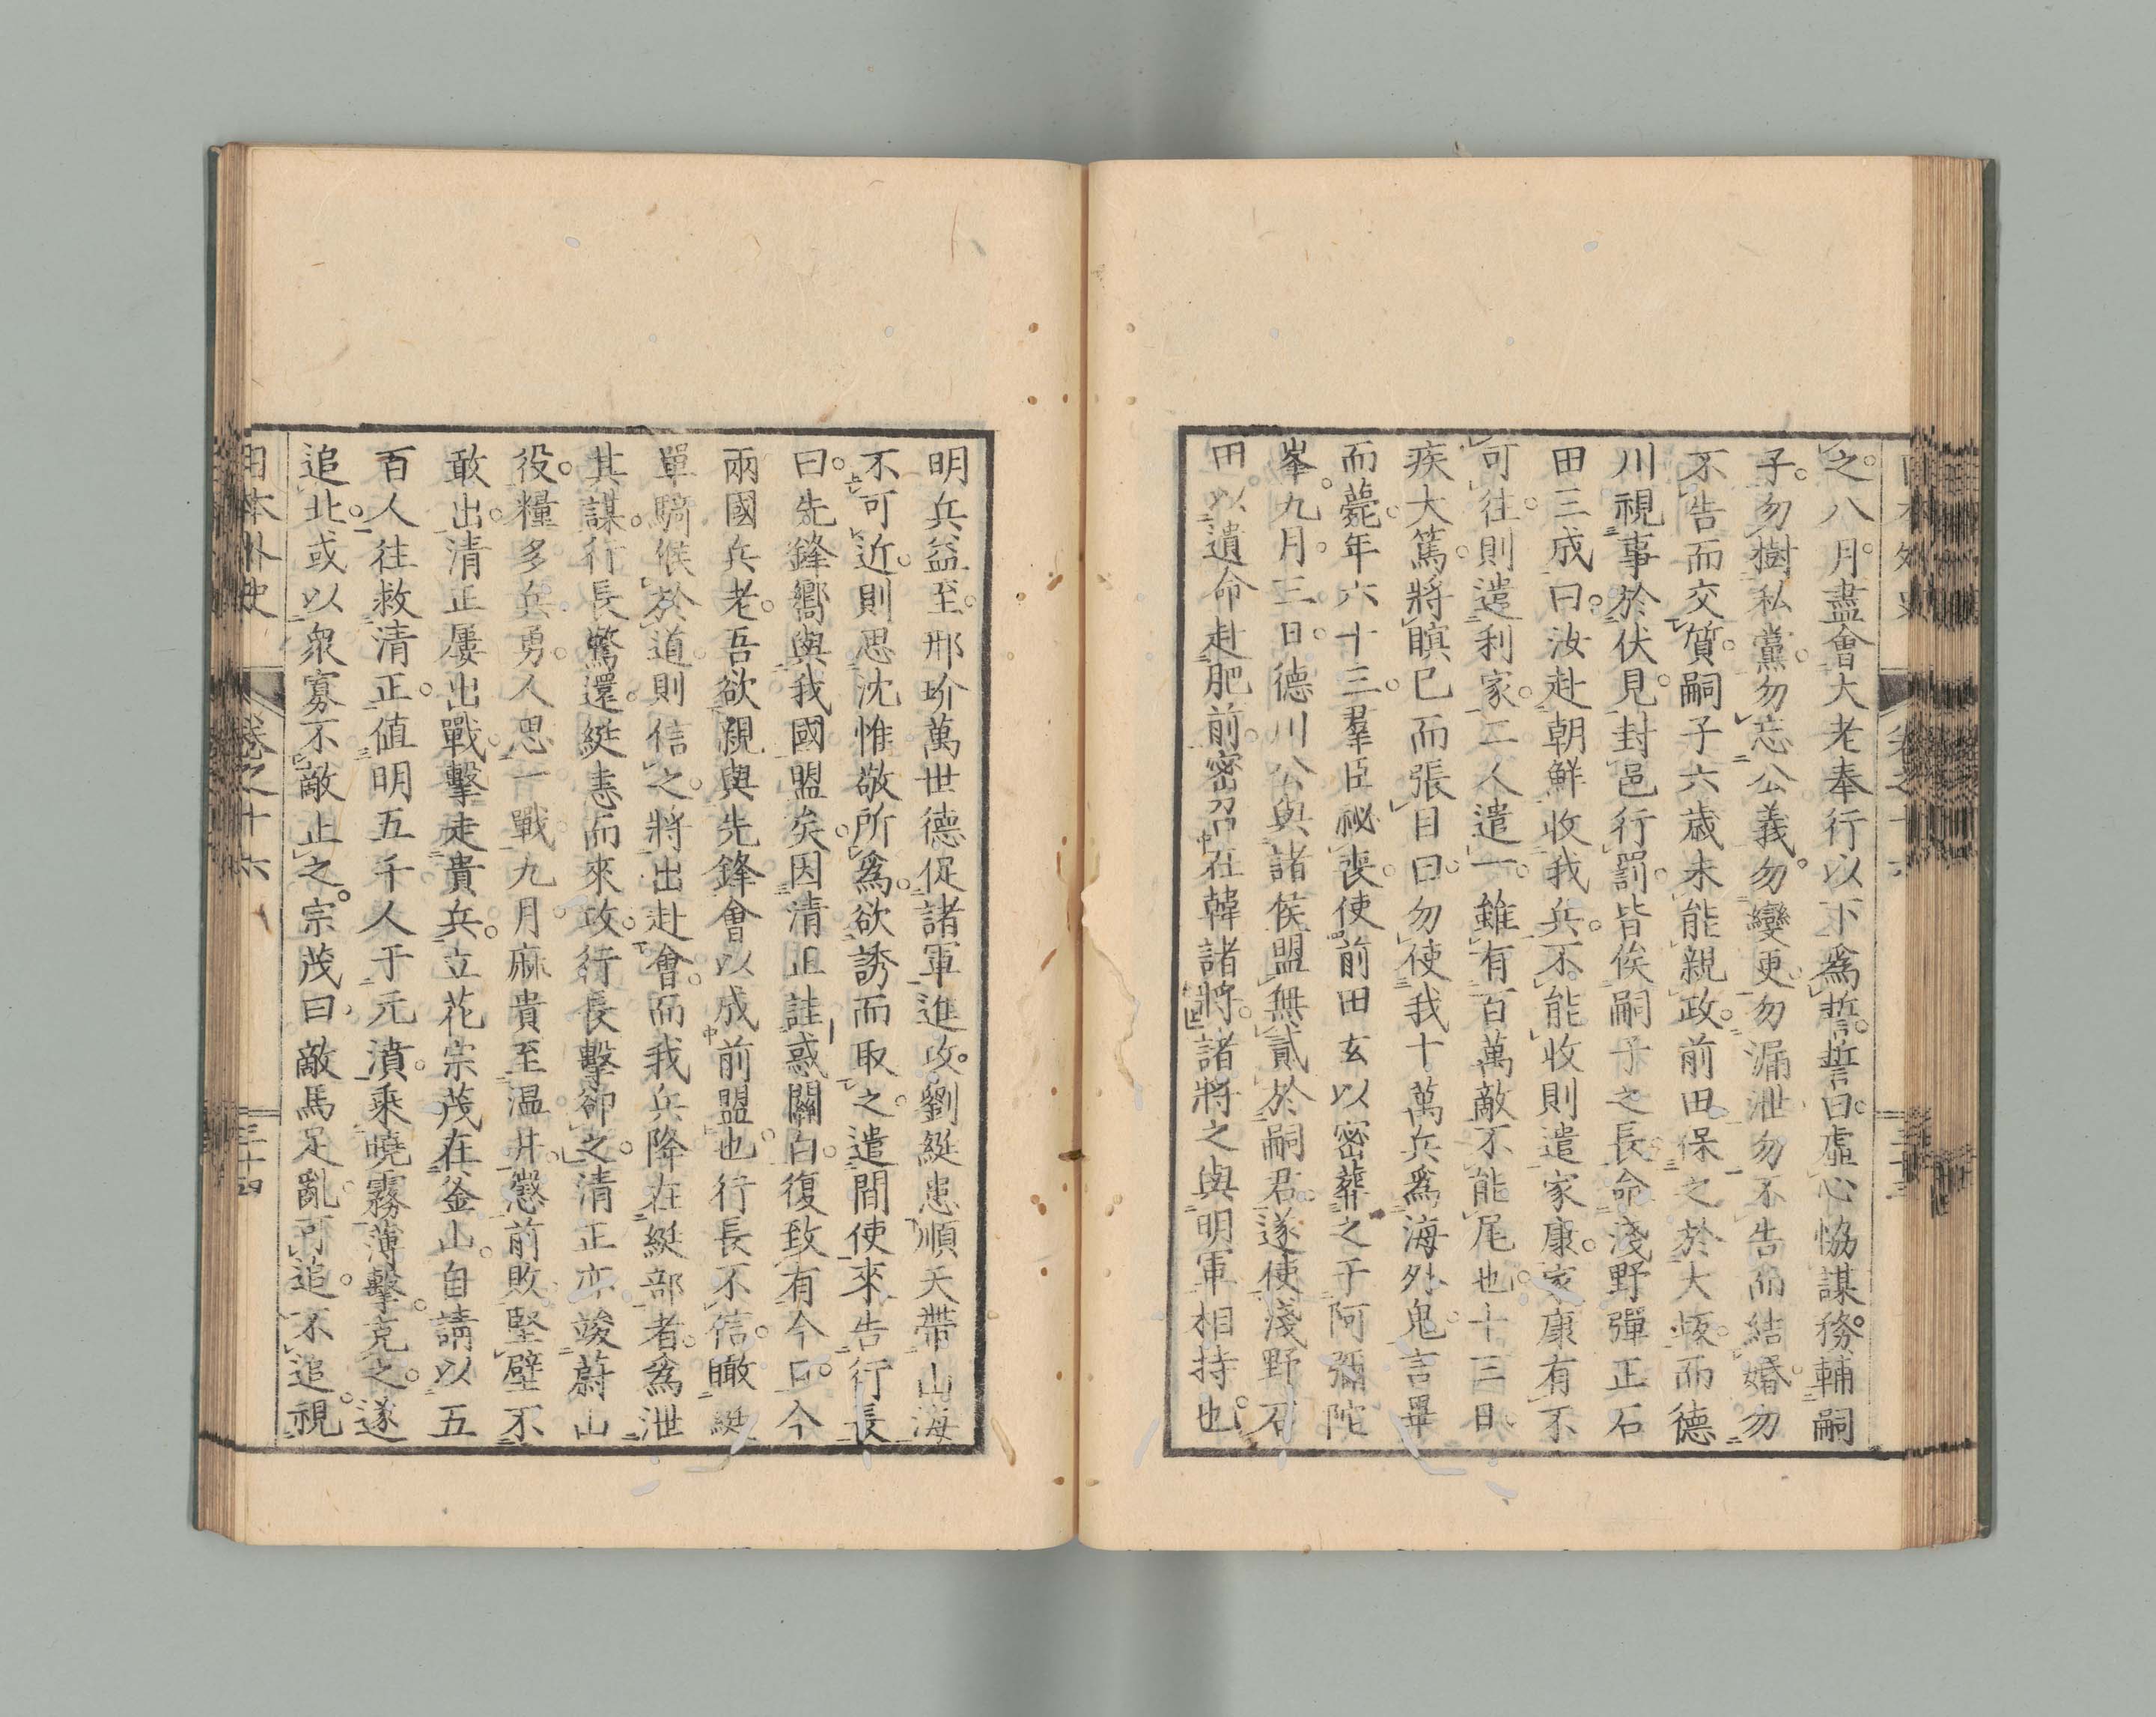 之八月盡會大老奉行以下爲誓誓曰虛心恊謀務輔嗣
子勿樹私黨勿忘公義勿變更勿漏泄勿不告而結婚勿
不告而交質嗣子六歳未能親政前田保之於大坂而德
川視事於伏見封邑行罰皆俟嗣子之長命淺野彈正石
田三成曰汝赴朝鮮收我兵不能收則遣家康家康有不
可往則遣利家二人遣一雖有百萬敵不能尾也十三日
疾大篤將瞑已而張目曰勿使我十萬兵爲海外鬼言畢
而薨年六十三羣臣祕喪使前田玄以密葬之于阿彌陀
峯九月三日德川公與諸侯盟無貳於嗣君遂使淺野石
田以遺命赴肥前密召在韓諸將諸將之與明軍相持也
日本外史 卷之十六 三十三
明兵益至邢玠萬世德促諸軍進攻劉綎患順天帶山海
不可近則思沈惟敬所爲欲誘而取之遣間使來告行長
曰先鋒嚮與我國盟矣因清正詿惑關白復致有今日今
兩國兵老吾欲親與先鋒會以成前盟也行長不信瞰綎
單騎候於道則信之將出赴會而我兵降在綎部者爲泄
其謀行長驚還綎恚而來攻行長擊卻之清正亦竣蔚山
役糧多兵勇人思一戰九月麻貴至温井懲前敗堅壁不
敢出清正屢出戰擊走貴兵立花宗茂在釜山自請以五
百人往救清正値明五千人于元潰乘曉霧薄擊克之遂
追北或以衆寡不敵止之宗茂曰敵馬足亂可追不追視
日本外史 卷之十六 三十四